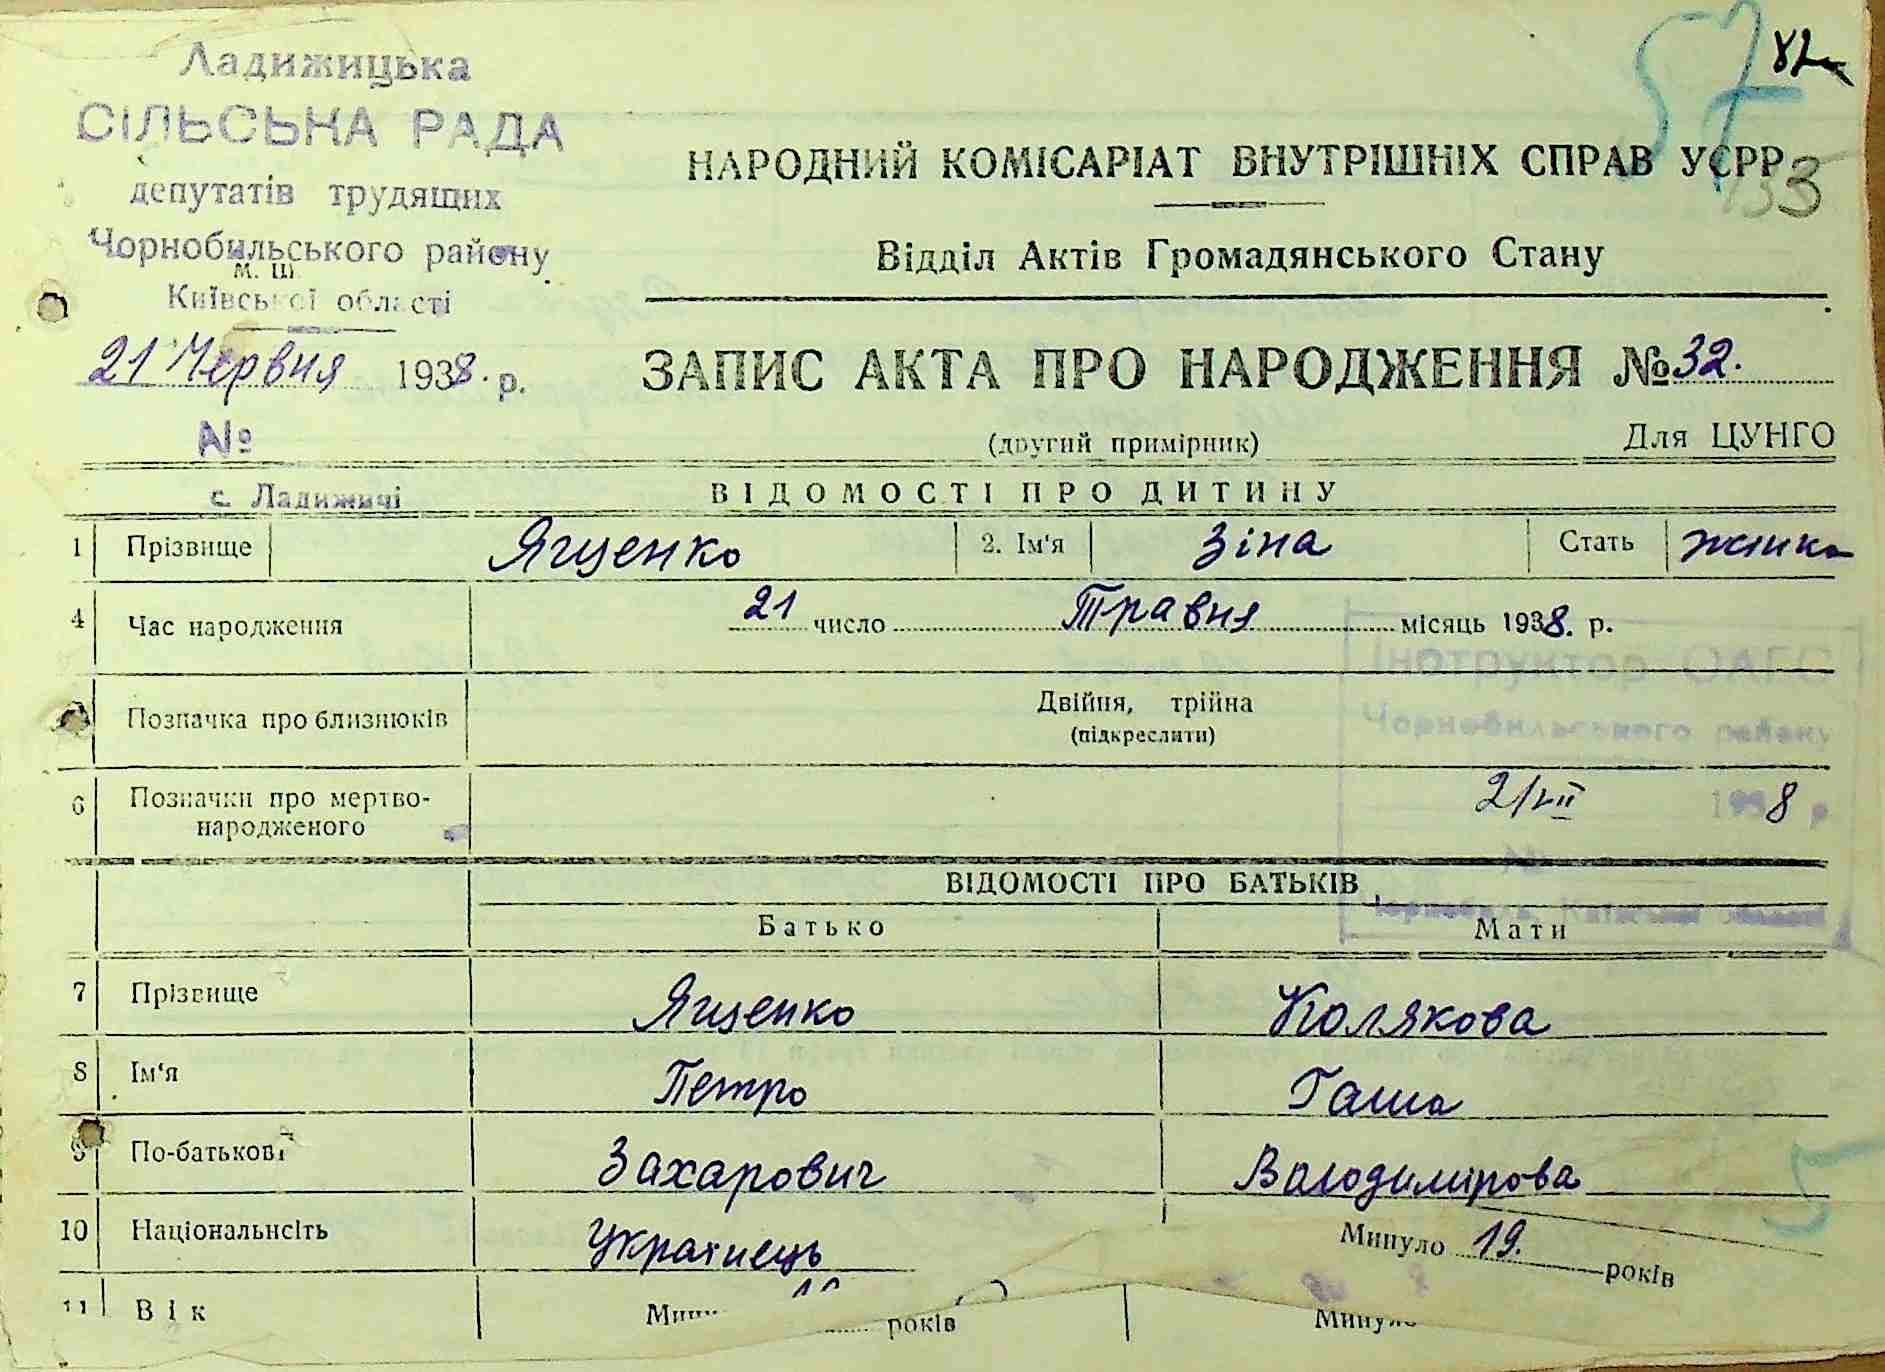 57 82
Ладижицька
СІЛЬСЬКА РАДА
депутатів трудящих
Чорнобильського району
м. ш.
Київської області
21 Червня 1938. р.
№
с. Ладижичі
НАРОДНИЙ КОМІСАРІАТ ВНУТРІШНІХ СПРАВ УСРР
133
Відділ Актів Громадянського Стану
ЗАПИС АКТА ПРО НАРОДЖЕННЯ № 32.
(другий примірник) Для ЦУНГО
ВІДОМОСТІ ПРО ДИТИНУ
1 Прізвище Ященко 2. Ім'я Зіна Стать жінка
4 Час народження 21 число Травня місяць 1938. р.
Позначка про близнюків Двійня, трійна
(підкреслити)
Інструктор ОАГС
Чорнобильського району
6 Позначки про мертво-
народженого
2/VII 1938 р
Чорнобиль, Київської області
ВІДОМОСТІ ПРО БАТЬКІВ
Батько Мати
7 Прізвище Ященко Колякова
8 Ім'я Петро Гаша
9 По-батькові Захарович Володимірова
5
10 Національнсіть Українець Минуло 19. років
11 Вік років Минуло